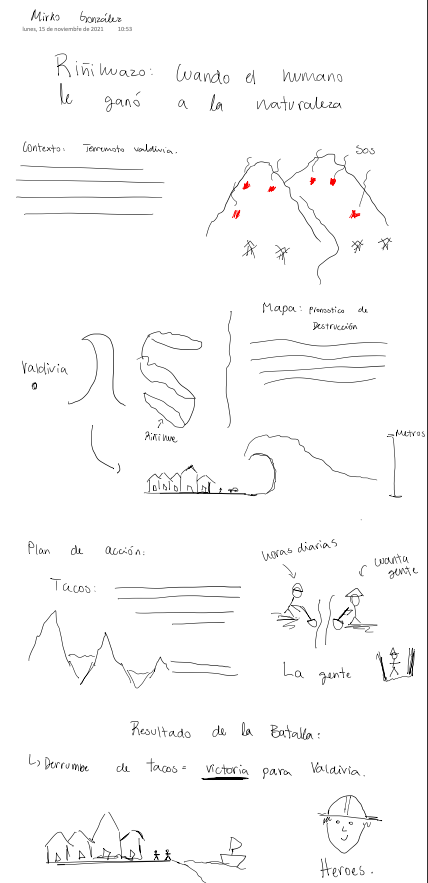 Mirko González
lunes, 15 de noviembre de 2021 10:53
Riñihuazo: Cuando el humano
le ganó a la naturaleza
Contexto: Terremoto Valdivia.
Sos
Mapa: pronostico de
Destrucción
Valdivia
Riñihue
Metros
Plan de acción:
horas diarias
cuanta
gente
Tacos:
La gente
Resultado de la Batalla:
↳ Derrumbe de tacos = victoria para Valdivia.
Heroes.